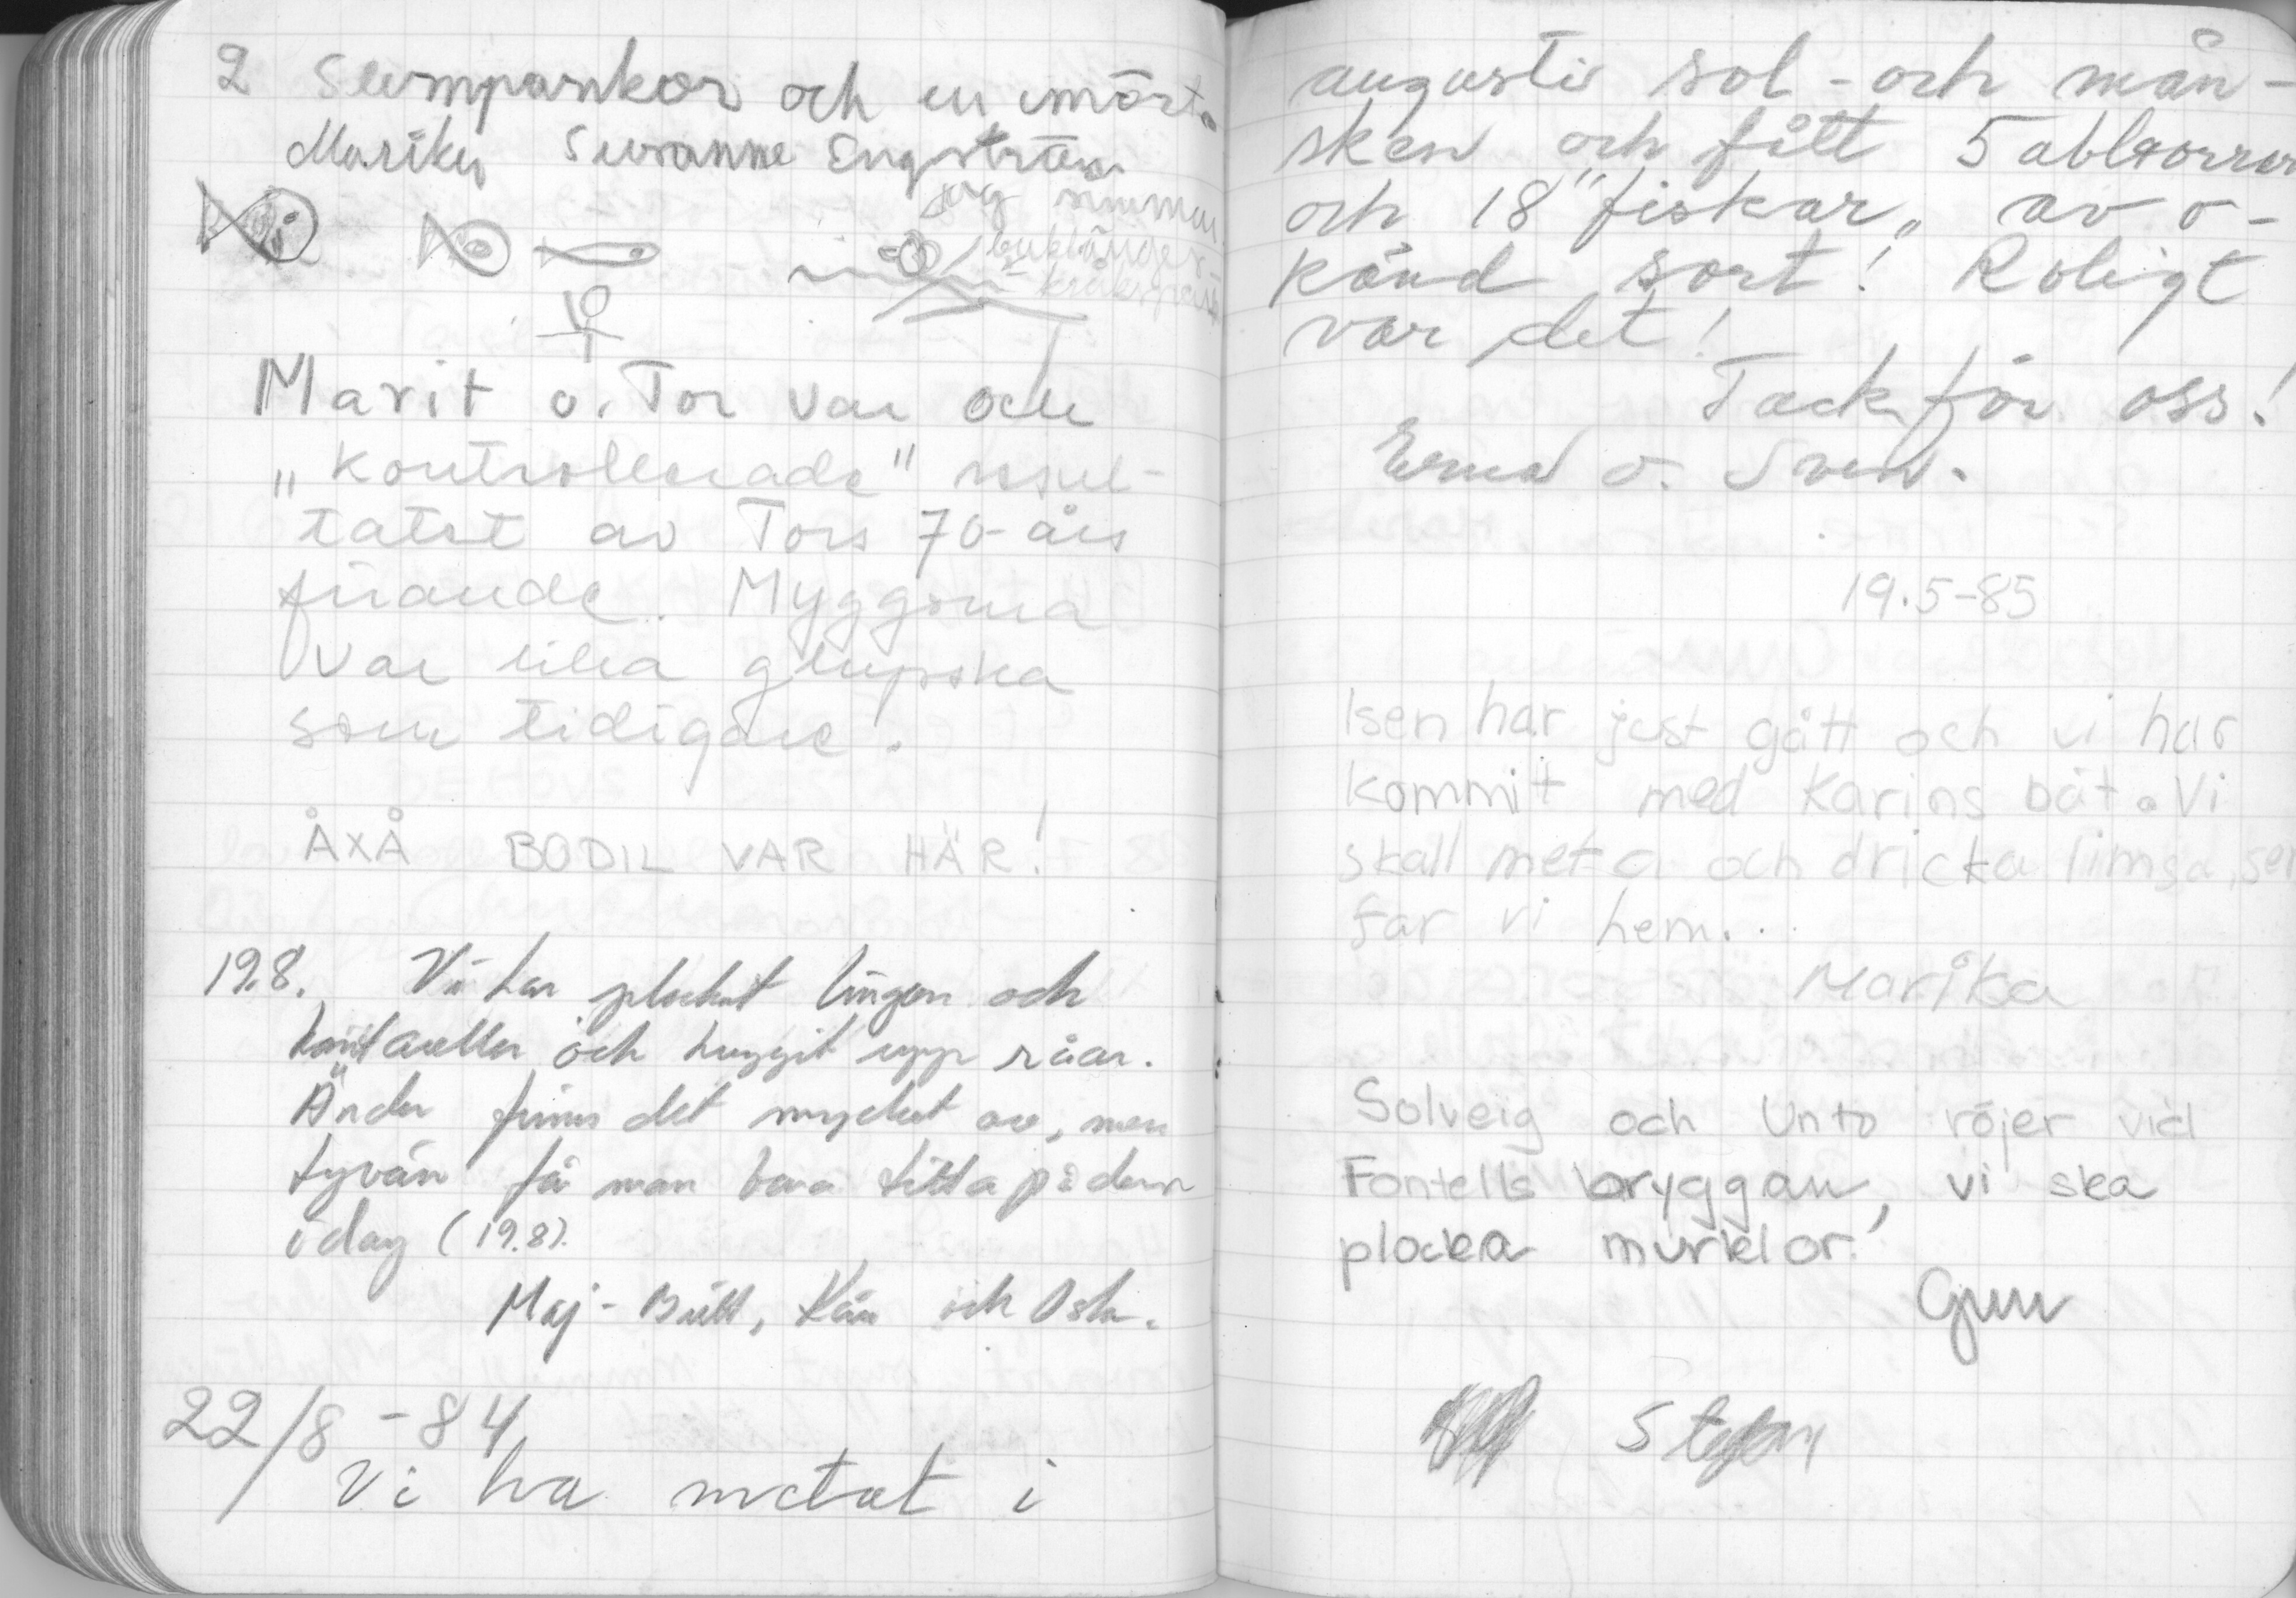 2 Sumpankor och en imört.
Marika Susanne Engström
jag simmar
Marit o. Tor var och
"kontrollerade" resul-
tatet av Tors 70-års
firande. Myggorna
var lika glupska
som tidigare.
ÅXÅ BODIL VAR HÄR!
19.8. Vi har plockat lingon och
kantareller och huggit upp råar.
Änder finns det mycket av, men
tyvän får man bara titta på dem
idag (19.8).
Maj-Britt, Kaj och
22/8-84
Vi ha metat i
augusti sol- och mån-
sken och fått 5 abborrar
och 18 "fiskar" av o-
känd sort! Roligt
var det!
Tack för oss!
Erna o. Sven.
19.5-85
Isen har just gått och vi har
kommit med Karins båt. Vi
skall meta och dricka limsa, sen
far vi hem...
Marika
Solveig och Unto röjer vid
Fontells bryggan, vi ska
plocka murklor!
Gun